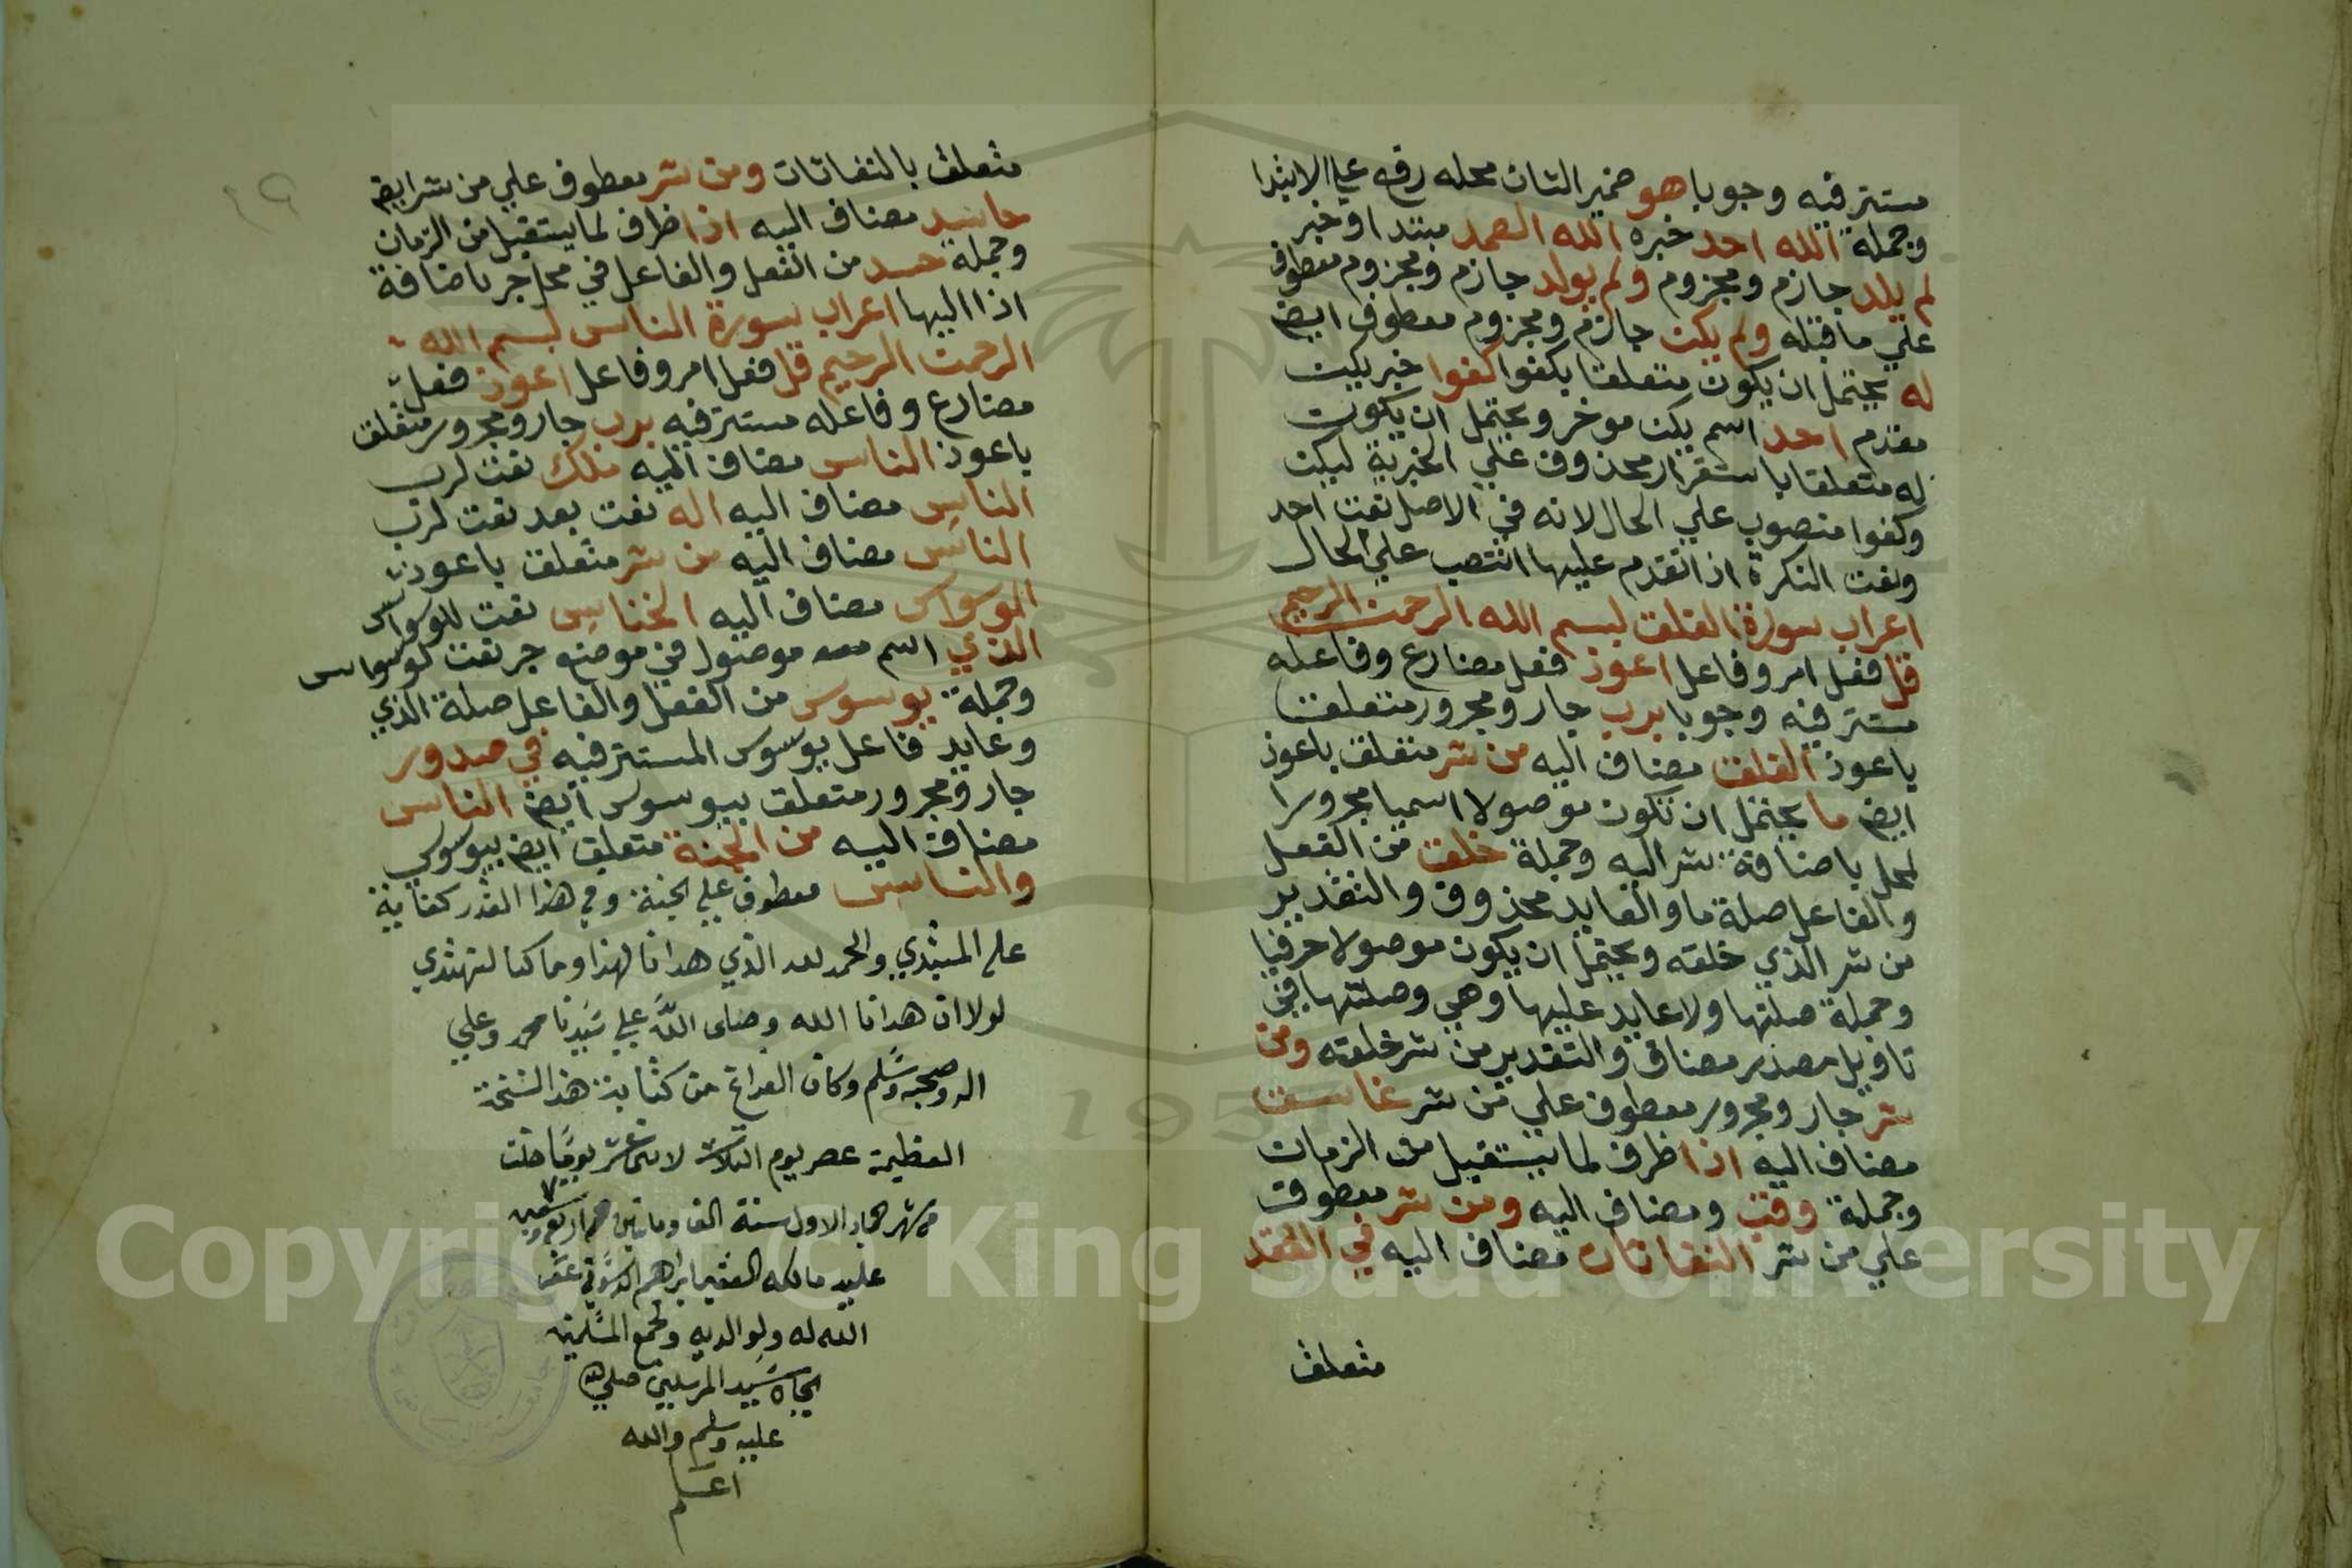 مستتر فيه وجوبا هو ضمير الشان محله رفع علي الابتدا
وجملة الله احد خبره الله الصمد مبتدا وخبر
لم يلد جازم ومجزوم ولم يولد جازم ومجزوم معطوف
علي ما قبله ولم يكن جازم ومجزوم معطوف ايض
له يحتمل ان يكون متعلقا بكفوا كفوا خبر يكن
مقدم احد اسم يكن موخر ويحتمل ان يكون
له متعلقا باستقرار محذوف علي الخبرية ليكن
وكفوا منصوب علي الحال لانه في الاصل نعت احد
ونعت النكرة اذا تقدم عليها انتصب علي الحال
اعراب سورة الفلق بسم الله الرحمن الرحيم
قل فعل امر وفاعل اعوذ فعل مضارع وفاعله
مستتر فيه وجوبا برب جار ومجرور متعلق
باعوذ الفلق مضاف اليه من شر متعلق باعوذ
ايض ما يحتمل ان تكون موصولا اسميا مجرورا
لمحل باضافة شر اليه وجملة خلق من الفعل
والفاعل صلة ما والعايد محذوف والتقدير
من شر الذي خلقه ويحتمل ان يكون موصولا حرفيا
وجملة صلتها ولا عايد عليها وهي وصلتها في
تاويل مصدر مضاف والتقدير من شر خلقه ومن
شر جار ومجرور معطوف علي من شر غاسق
مضاف اليه اذا ظرف لما يستقبل من الزمان
وجملة وقب ومضاف اليه ومن شر معطوف
علي من شر النفاثات مضاف اليه في العقد
متعلق
متعلق بالنفاثات ومن شر معطوف علي من شر ايض
حاسد مضاف اليه اذا ظرف لما يستقبل من الزمان
وجملة حسد من الفعل والفاعل في محل جر باضافة
اذا اليها اعراب سورة الناس بسم الله
الرحمن الرحيم قل فعل امر وفاعل اعوذ فعل
مضارع وفاعله مستتر فيه برب جار ومجرور متعلق
باعوذ الناس مضاف اليه ملك نعت لرب
الناس مضاف اليه اله نعت بعد نعت لرب
الناس مضاف اليه من شر متعلق باعوذ
الوسواس مضاف اليه الخناس نعت للوسواس
الذي اسم موصول في موضع جر نعت لوسواس
وجملة يوسوس من الفعل والفاعل صلة الذي
وعايد فاعل يوسوس المستتر فيه في صدور
جار ومجرور متعلق بيوسوس ايض الناس
مضاف اليه من الجنة متعلق ايض بيوسوس
والناس معطوف علي الجنة وفي هذا القدر كفاية
علي المبتدي والحمد لله الذي هدانا لهذا وما كنا لنهتدي
لولا ان هدانا الله وصلى الله علي سيدنا محمد وعلي
اله وصحبه وسلم وكان الفراغ من كتابة هذه النسخة
العظيمة عصر يوم الثلاث لاثني عشر يوما خلت
من شهر جماد الاول سنة الف ومايتين
مالكه الفقير ابراهيم الدسوقي غفر
الله له ولوالديه ولجميع المسلمين
بجاه سيد المرسلين صلي الله
عليه وسلم والله
اعلم
Copyright © King Saud University
1957